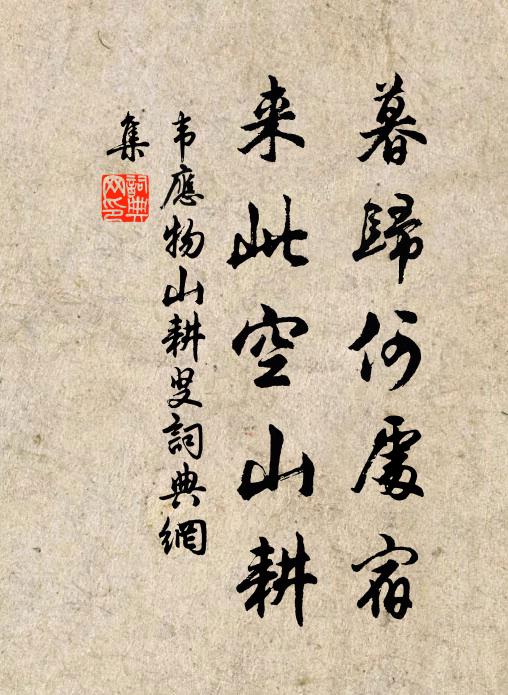 暮歸何處宿
来此空山耕
韦應物山耕叟詞典網
集
詞典
网印